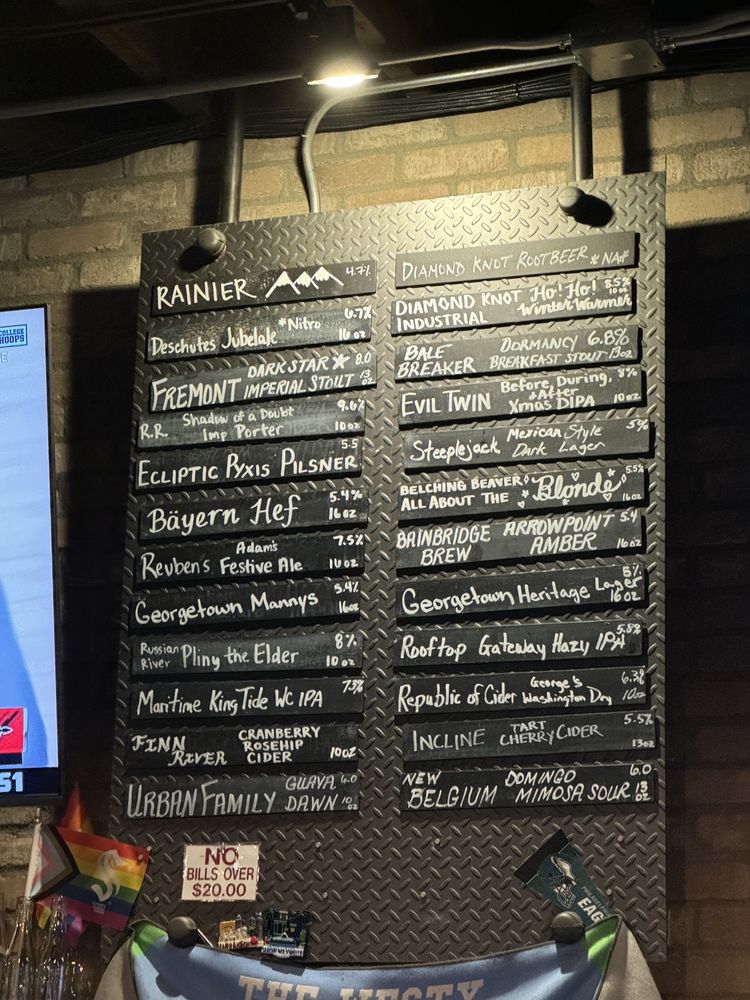 RAINIER 4.7%
Deschutes Jubelale *Nitro 6.7%
16 oz
FREMONT DARK STAR 8.0
IMPERIAL STOUT 13 oz
R.R. Shadow of a Doubt 9.6%
Imp Porter 10 oz
ECLIPTIC PYXIS PILSNER 5.5
Bäyern Hef 5.4%
16 oz
Reuben's Adam's 7.5%
Festive Ale 10 oz
Georgetown Mannys 5.4%
16oz
Russian River Pliny the Elder 8%
10 oz
Maritime King Tide WC IPA 7.3%
FINN RIVER CRANBERRY
ROSEHIP
CIDER 10oz
URBAN FAMILY GUAVA 6.0
DAWN 10 oz
DIAMOND KNOT ROOTBEER *NA*
DIAMOND KNOT Ho! Ho! 8.5%
INDUSTRIAL Winter Warmer 10oz
BALE DORMANCY 6.8%
BREAKER BREAKFAST STOUT 13oz
EVIL TWIN Before, During, 8%
& After
Xmas DIPA 10oz
Steeplejack Mexican Style 5%
Dark Lager
BELCHING BEAVER Blonde 5.5%
ALL ABOUT THE 16oz
BAINBRIDGE ARROWPOINT 5.4
BREW AMBER 16oz
Georgetown Heritage Lager 5%
16 oz
Rooftop Gateway Hazy IPA 5.8%
Republic of Cider George's 6.3%
Washington Dry 10oz
INCLINE TART 5.5%
CHERRY CIDER 13oz
NEW DOMINGO 6.0
BELGIUM MIMOSA SOUR 13 oz
COLLEGE
HOOPS
51
NO
BILLS OVER
$20.00
EAG
THE WESTY